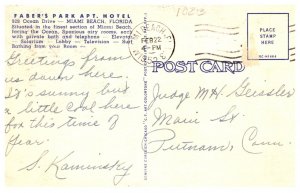 FABER'S PARK APT. HOTEL
925 Ocean Drive — MIAMI BEACH, FLORIDA
Situated in the finest section of Miami Beach,
facing the Ocean. Spacious airy rooms, every
with private bath and telephone — Elevator
Solarium — Lobby — Television — Surf
Bathing from your Room —
Greetings from
us down here.
It's sunny but
a little cool here
for this time of
year.
S. Kaminsky
MIAMI BEACH, FLA.
FEB 22
4 - PM
POST CARD
PLACE
STAMP
HERE
Judge M H Geissler
Marie St.
Putnam, Conn.